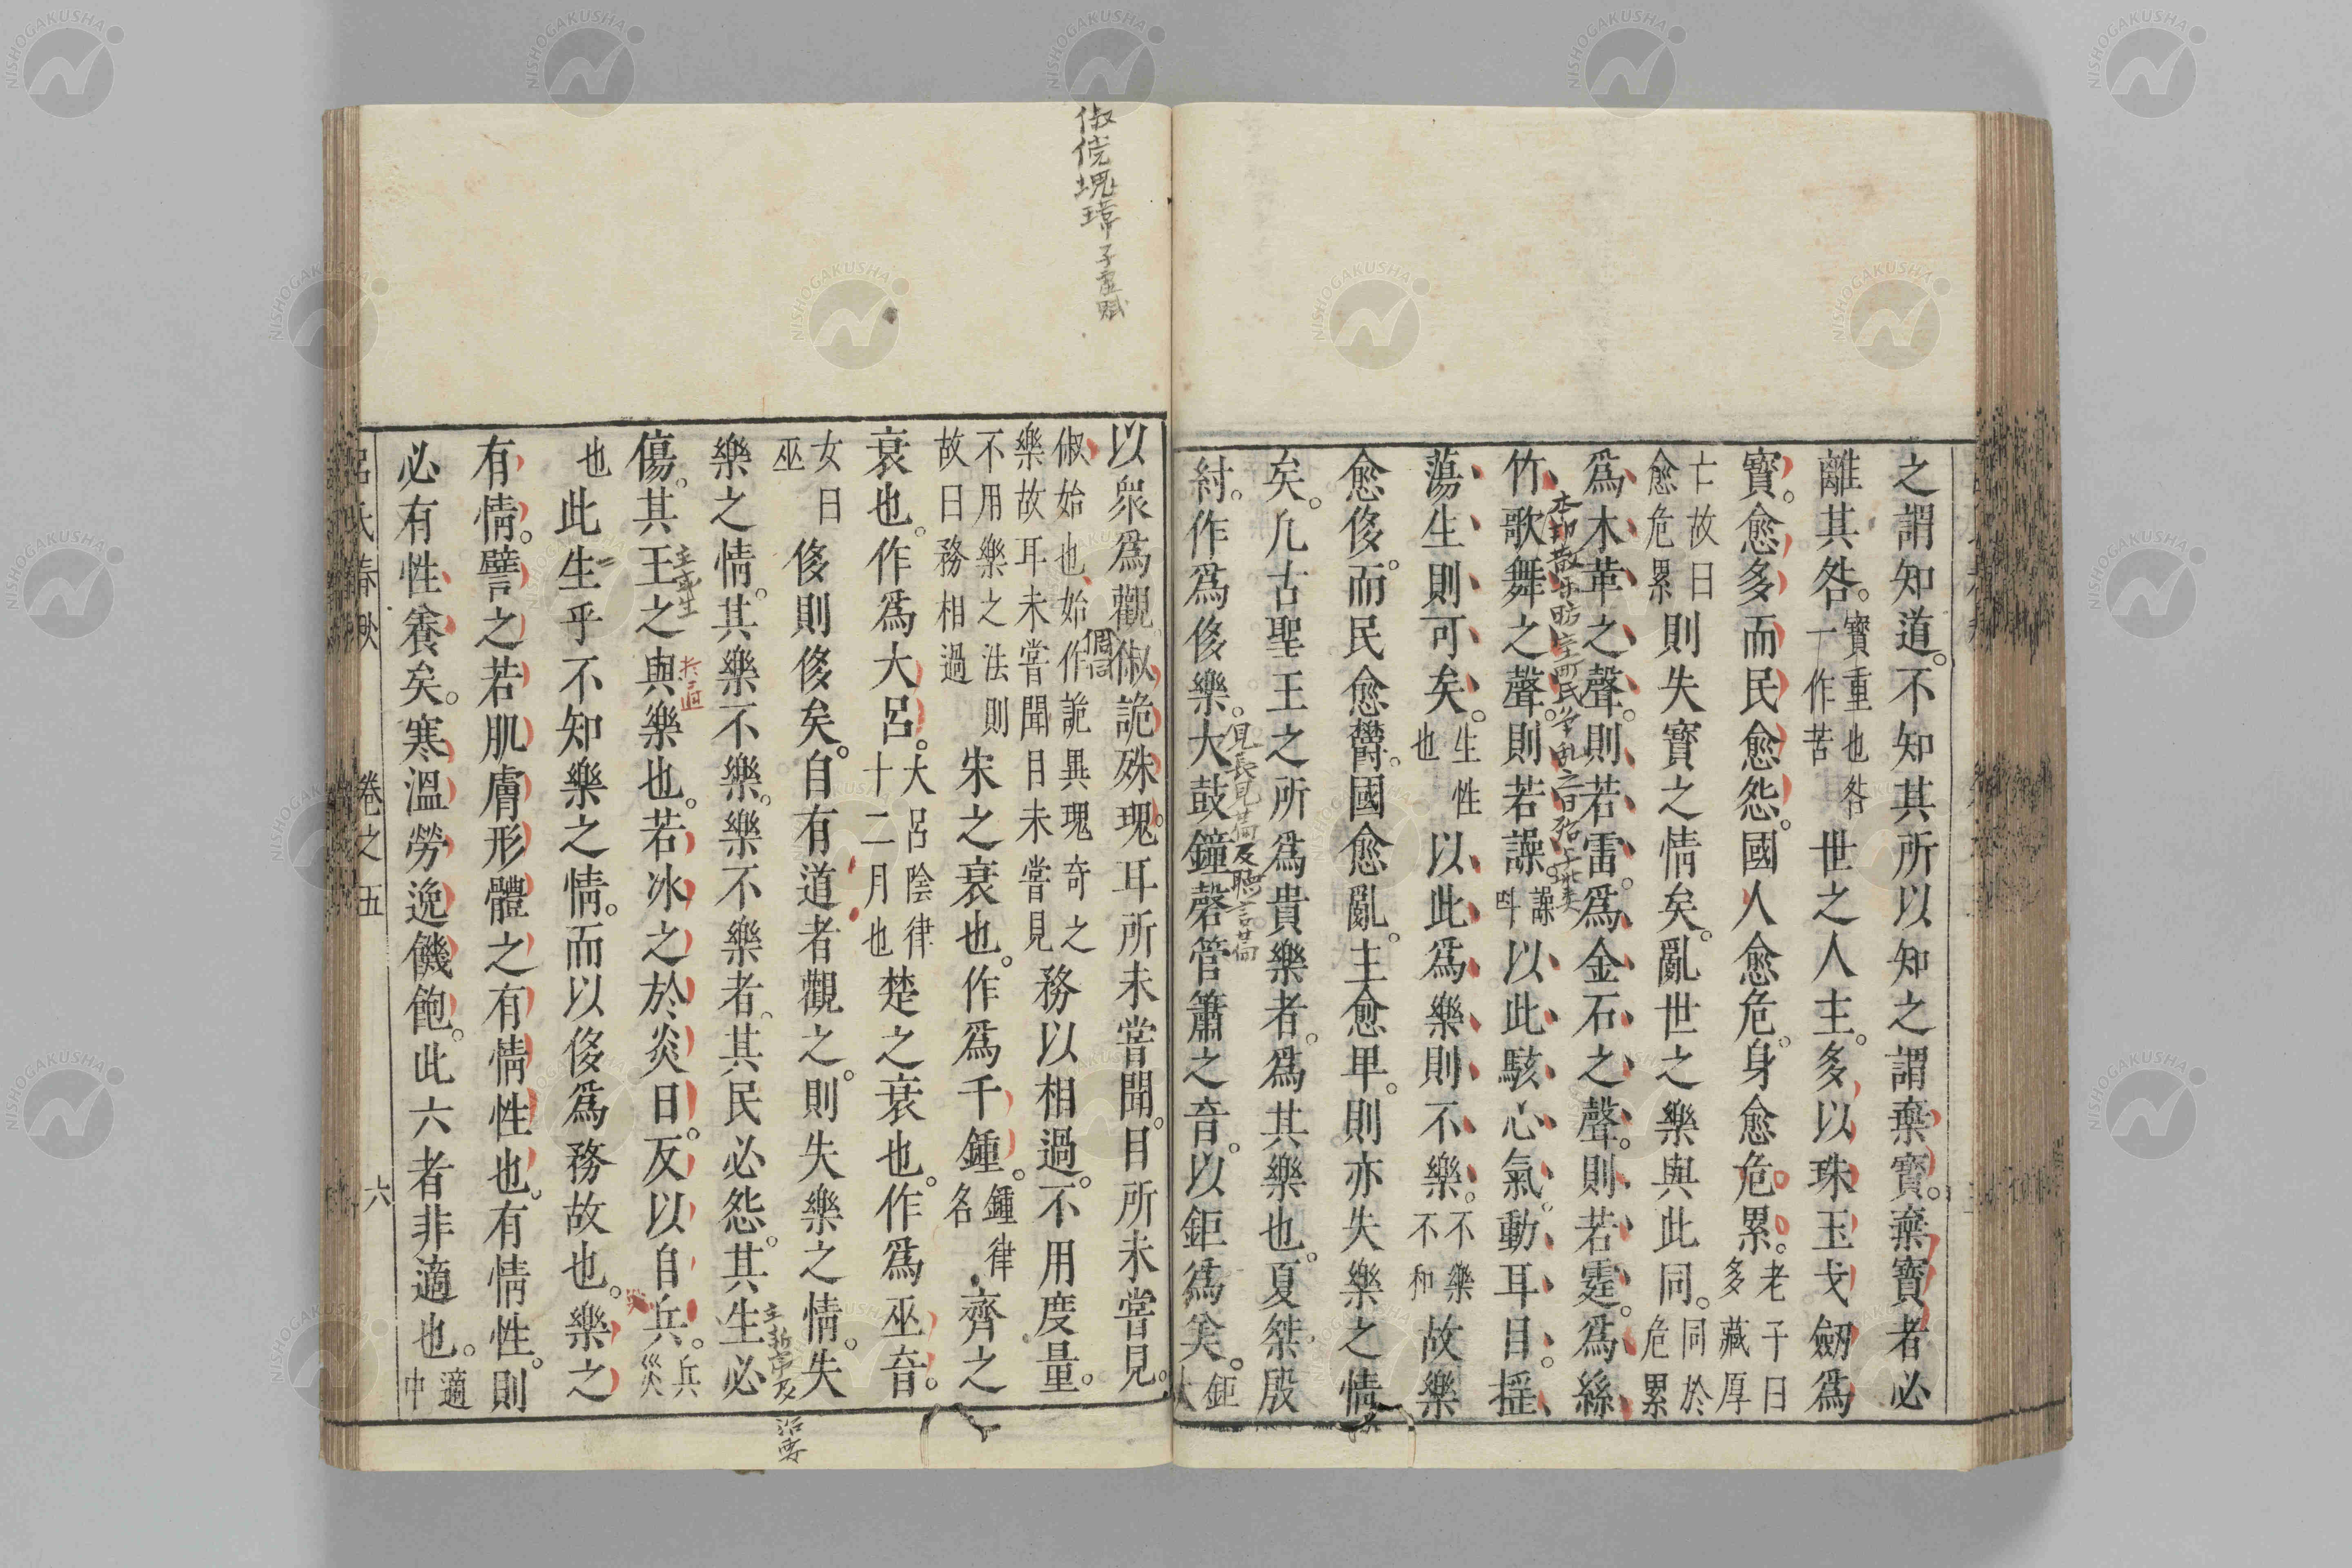 之謂知道。不知其所以知之謂棄寶。棄寶者必
離其咎。寶重也咎一作苦世之人主。多以珠玉戈劒爲
寶。愈多而民愈怨。國人愈危。身愈危累。老子曰多藏厚
亡故曰愈危累則失寶之情矣。亂世之樂與此同。同於危累
爲木革之聲。則若雷。爲金石之聲。則若霆。爲絲
竹歌舞之聲。則若譟。譟叫以此駭心氣。動耳目。揺
蕩生則可矣。生性也以此爲樂則不樂。不樂不和故樂
愈侈。而民愈鬱。國愈亂。主愈卑。則亦失樂之情
矣。凢古聖王之所爲貴樂者。爲其樂也。夏桀殷
紂。作爲侈樂。大鼓鐘磬管簫之音。以鉅爲美。鉅大
見長見篇及聽言篇
俶傥塊瑋子虛賦
以衆爲觀。俶詭殊瑰。耳所未嘗聞。目所未嘗見。
俶始也始作詭異瑰奇之樂故耳未嘗聞目未嘗見務以相過。不用度量。
不用樂之法則故曰務相過宋之衰也。作爲千鍾。鍾律名齊之
衰也。作爲大呂。大呂陰律十二月也楚之衰也。作爲巫音。
女曰巫侈則侈矣。自有道者觀之。則失樂之情。失
樂之情。其樂不樂。樂不樂者。其民必怨。其生必
傷。其王之與樂也。若冰之於炎日。反以自兵。兵災
也此生乎不知樂之情。而以侈爲務故也。樂之
有情。譬之若肌膚形體之有情性也。有情性。則
必有性養矣。寒溫勞逸饑飽。此六者非適也。適中
呂氏春秋 卷之五 六
NISHOGAKUSHA